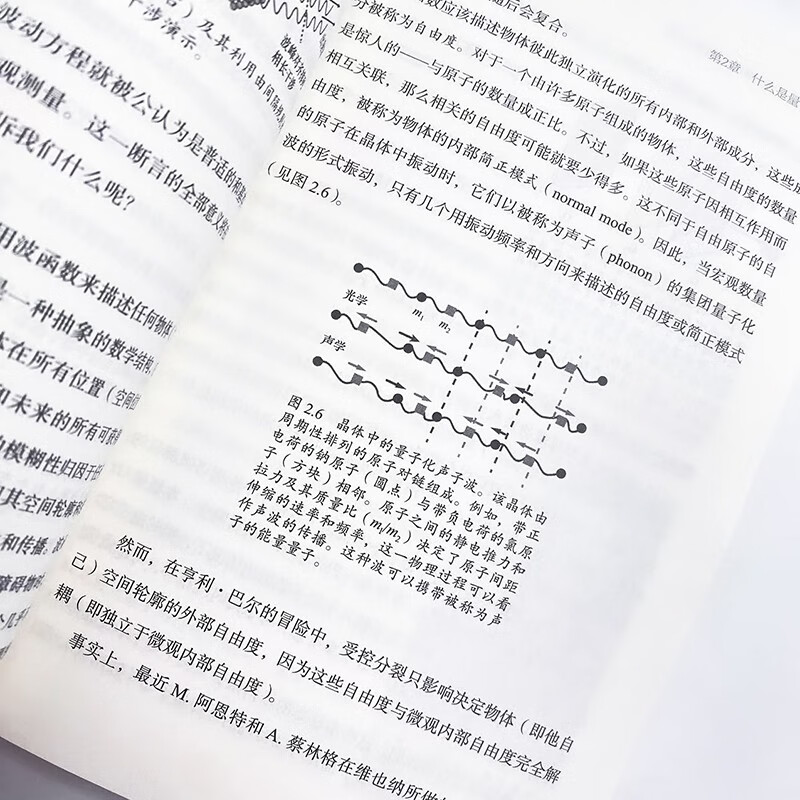 ）及其利用由间隔
干涉演示。
波动方程就被公认为是普适的和
观测量。这一断言的全部意义
诉我们什么呢？
用波函数来描述任何物
是一种抽象的数学结构
体在所有位置（空间
和未来的所有可
的模糊性归因于
其空间轮廓和
和传播，
障碍物
第2章 什么是量
随后会复合。
数应该描述物体彼此独立演化的所有内部和外部成分，这些
分被称为自由度。对于一个由许多原子组成的物体，这些自由度的数量
是惊人的——与原子的数量成正比。不过，如果这些原子因相互作用而
相互关联，那么相关的自由度可能就要少得多。这不同于自由原子的自
由度，被称为物体的内部简正模式（normal mode）。因此，当宏观数量
的原子在晶体中振动时，它们以被称为声子（phonon）的集团量子化
波的形式振动，只有几个用振动频率和方向来描述的自由度或简正模式
（见图 2.6）。
光学
m₁ m₂
声学
图 2.6 晶体中的量子化声子波。该晶体由
周期性排列的原子对链组成。例如，带正
电荷的钠原子（圆点）与带负电荷的氯原
子（方块）相邻。原子之间的静电推力和
拉力及其质量比（m₁/m₂）决定了原子间距
伸缩的速率和频率，这一物理过程可以看
作声波的传播。这种波可以携带被称为声
子的能量量子。
然而，在亨利·巴尔的冒险中，受控分裂只影响决定物体（即他自
己）空间轮廓的外部自由度，因为这些自由度与微观内部自由度完全解
耦（即独立于微观内部自由度）。
事实上，最近 M. 阿恩特和 A. 蔡林格在维也纳所做